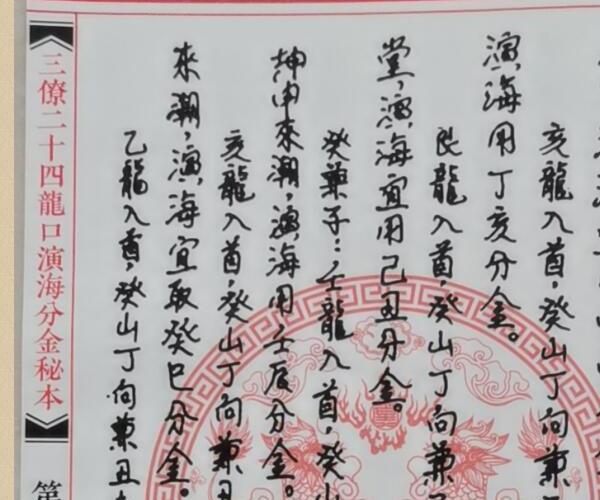 亥龍入首，癸山丁向兼
演海用丁亥分金。
艮龍入首，癸山丁向兼
堂，演海宜用己丑分金。
癸兼子：壬龍入首，癸山
坤申來潮，演海用壬辰分金。
亥龍入首，癸山丁向兼丑
來潮，演海宜取癸巳分金。
乙龍入首，癸山丁向兼丑
三僚二十四龍口演海分金秘本
第